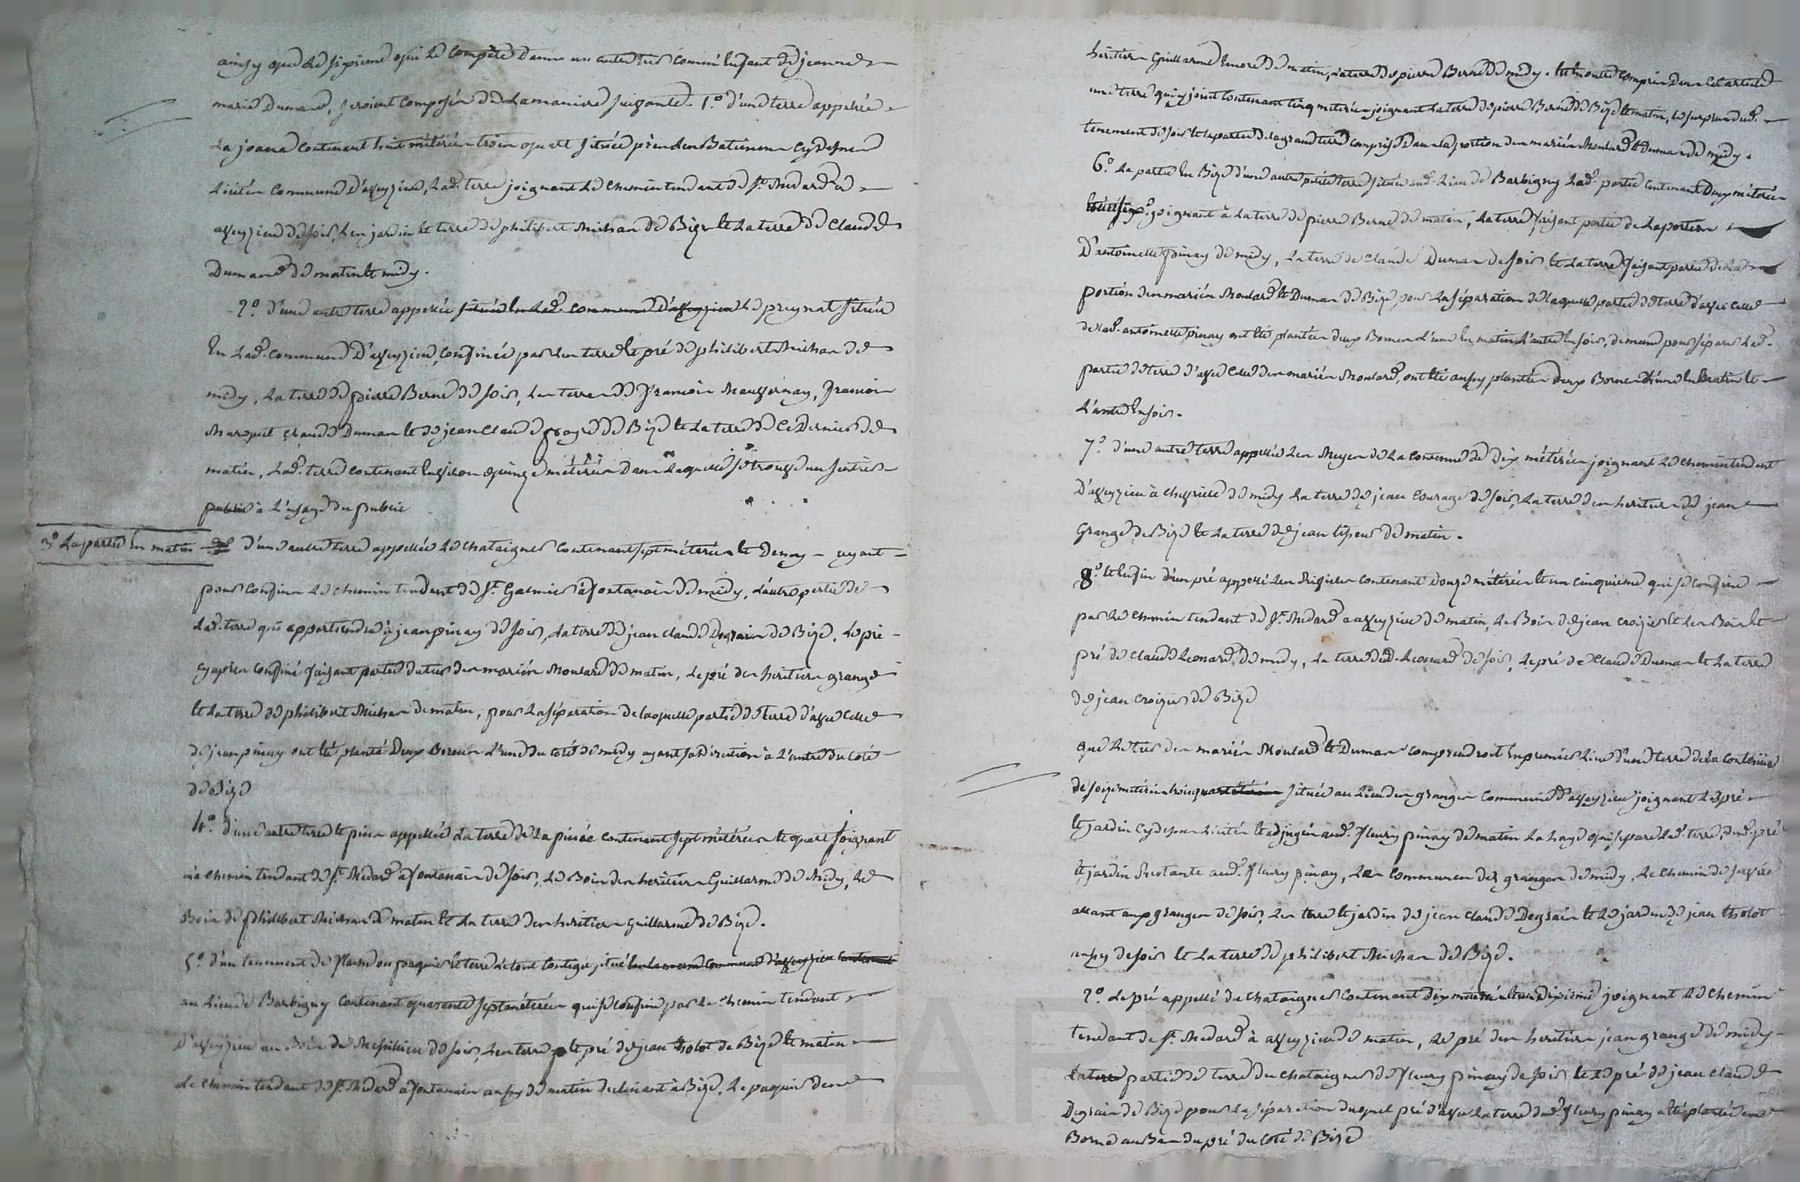 ainsy que le sixieme qui le compète dans un autre tiers comme enfant de jeanne
marie Dumand, seroient composés de la maniere suivante. 1.° d'une terre appelée
la joana contenant huit métérées trois quart située près des Batimens cy dessus
dittes commune d'aveyzieu, lad.e terre joignant le chemin tendant de S.t Medard a
aveyzieu de soir, les jardin et terre de philibert Michan de Bize et la terre de Claude
Dumand de matin et midy.
2.° d'une autre terre appellée située en lad.e commune d'aveyzieu le preynat située
en lad.e commune d'aveyzieu, confinée par les terre et pré de philibert Michan de
midy, la terre de pierre Berne de soir, les terres de francois
Claude Duman et de jean Claude de Bize et la terre de ce dernier de
matin, lad.e terre contenant environ quinze métérées dans laquelle se trouve un sentier
public à l'usage du public
3.° la partie en matin d'une autre terre appellée le chataignier contenant sept métérées et demy ayant
pour confins le chemin tendant de S.t Galmier à fontanais de midy, l'autre partie de
lad.e terre qui appartiendra à jean pinay de soir, la terre de jean claude Degrain de Bize, le pré
cy après confiné faisant partie du tiers des mariés Moulard de matin, le pré des heritiers grange
et la terre de philibert Michan de matin, pour la séparation de laquelle partie de terre d'avec celle
de jean pinay ont été planté deux bornes l'une du coté de midy ayant sa direction à l'autre du coté
de bize
4.° d'une autre terre et pins appellée la terre de la pinée contenant sept métérées et quart joignant
au chemin tendant de S.t Medard a fontanais de soir, le Bois des heritiers Guillarme de midy, le
Bois de philibert Michan de matin et la terre des heritiers Guillarme de Bize.
5.° d'un tenement de et terre le tout contigu, situé en la meme commune d'aveyzieu contenant
au lieu de Barbigny contenant quarente sept métérées qui se confine par le chemin tendant
d'aveyzieu au Bois de de soir, les terre et pré de jean tholot de Bize et matin
le chemin tendant de S.t Medard a fontanais aussy de matin declinant à Bize, le paquis des
heritiers Guillarme encore de matin, la terre de pierre Berne de midy. est encore compris dans cet article
une terre qui y joint contenant cinq métérées joignant la terre de pierre Berne de Bize et matin, le surplus dud.
tenement de soir et la partie de la grand terre comprise dans la portion des mariés Moulard et Dumand de midy.
6.° la partie en Bize d'une autre petite terre située aud. lieu de Barbigny lad.e partie contenant deux métérées
joignant à la terre de pierre Berne de matin, la terre faisant partie de la portion
D'antoinette pinay de midy, la terre de claude Duman de soir et la terre faisant partie de la
portion des mariés Moulard et Duman de Bize, pour la séparation de laquelle partie de terre d'avec celle
de lad.e antoinette pinay ont été plantés deux Bornes l'une en matin l'autre en soir, de meme pour séparer lad.e
partie de terre d'avec celle des mariés Moulard, ont été aussy plantés deux Bornes l'une en matin et
l'autre en soir.
7.° d'une autre terre appellée les Meyer de la contenue de dix métérées joignant le chemin tendant
D'aveyzieu à chevrieres de midy la terre de jean Courage de soir, la terre des heritiers de jean
Grange de Bize et la terre de jean de matin.
8.° et enfin d'un pré appellé les contenant douze métérées et un cinquieme qui se confine
par le chemin tendant de S.t Medard a aveyzieu de matin, le Bois de jean croizier et les Bois et
pré de Claude Leonard de midy, la terre dud. Leonard de soir, le pré de Claude Duman et la terre
de jean croizier de Bize
que le tiers des mariés Moulard et Duman comprendroit en premier lieu d'une terre de la contenue
de seize métérées trois quart située au lieu des granges commune d'aveyzieu joignant le pré
et jardin cy dessus et adjugés aud. fleury pinay de matin la haye qui separe lad.e terre dud. pré
et jardin restante aud. fleury pinay, les communes des granges de midy, le chemin de
allant aux granges de soir, les terre et jardin de jean claude Degrain et le jardin de jean tholot
aussy de soir et la terre de philibert Michan de Bize.
2.° le pré appellé du chataignier contenant dix métérées et un dixieme joignant le chemin
tendant de S.t Medard à aveyzieu de matin, le pré des heritiers jean grange de midy
la terre partie de terre du chataignier de fleury pinay de soir et le pré de jean claude
Degrain de Bize pour la séparation duquel pré d'avec la terre dud. fleury pinay a été plantée une
Borne au Bas du pré du coté de Bize